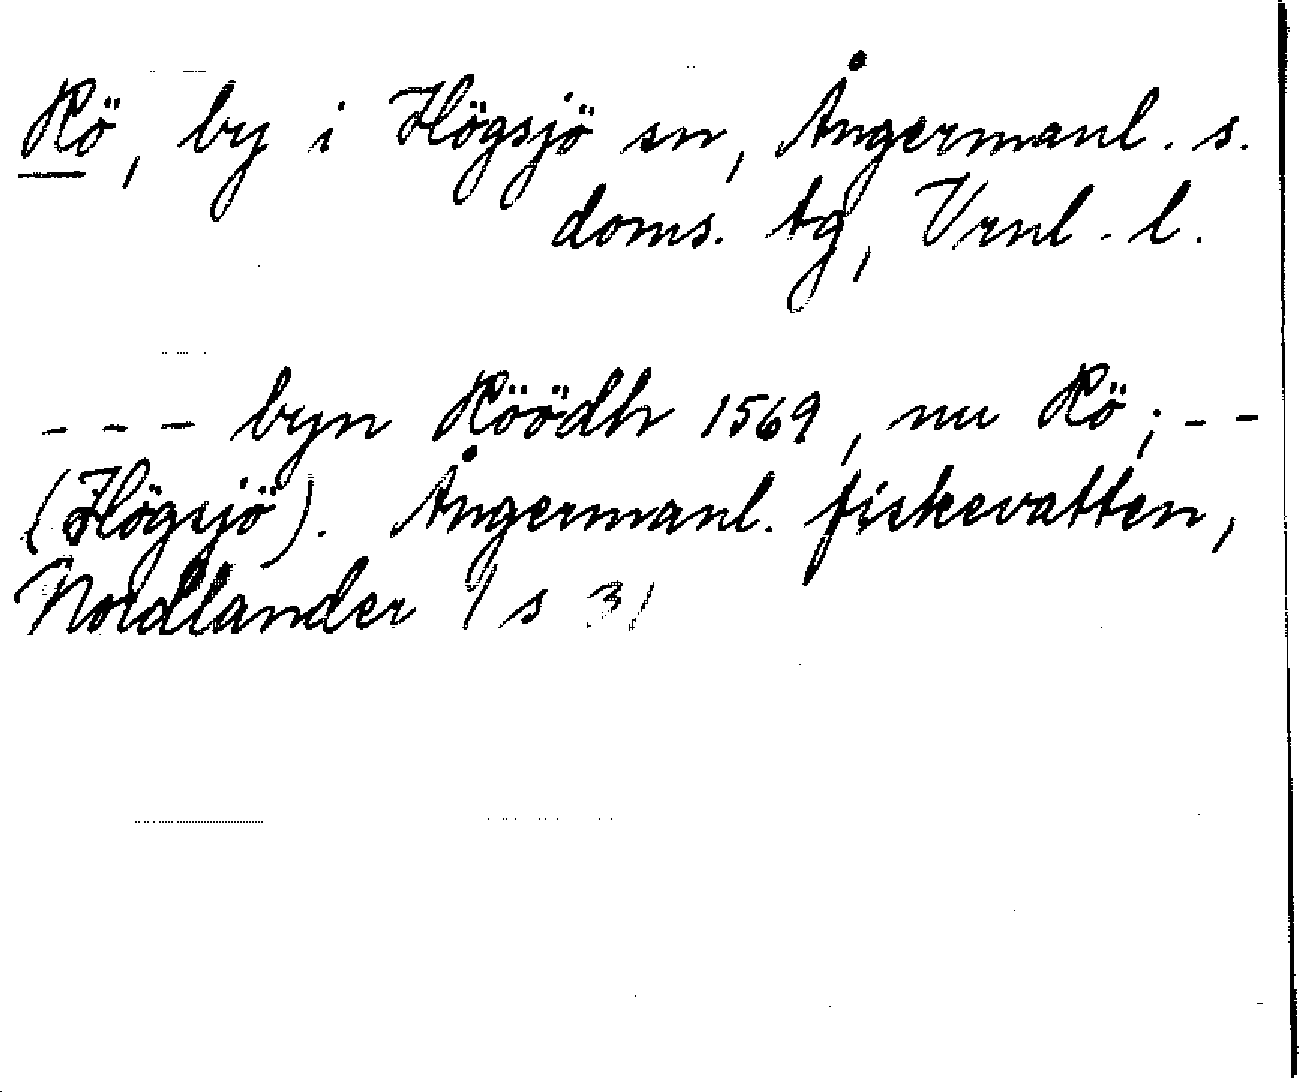 Rö, by i Högsjö sn, Ångermanl. s.
doms. tg, Vrnl. l.
--- byn Röödh 1569, nu Rö; --
(Högsjö). Ångermanl. fiskevatten,
Nordlander 1 s 31